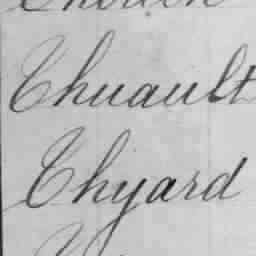 Thuault
Thyard